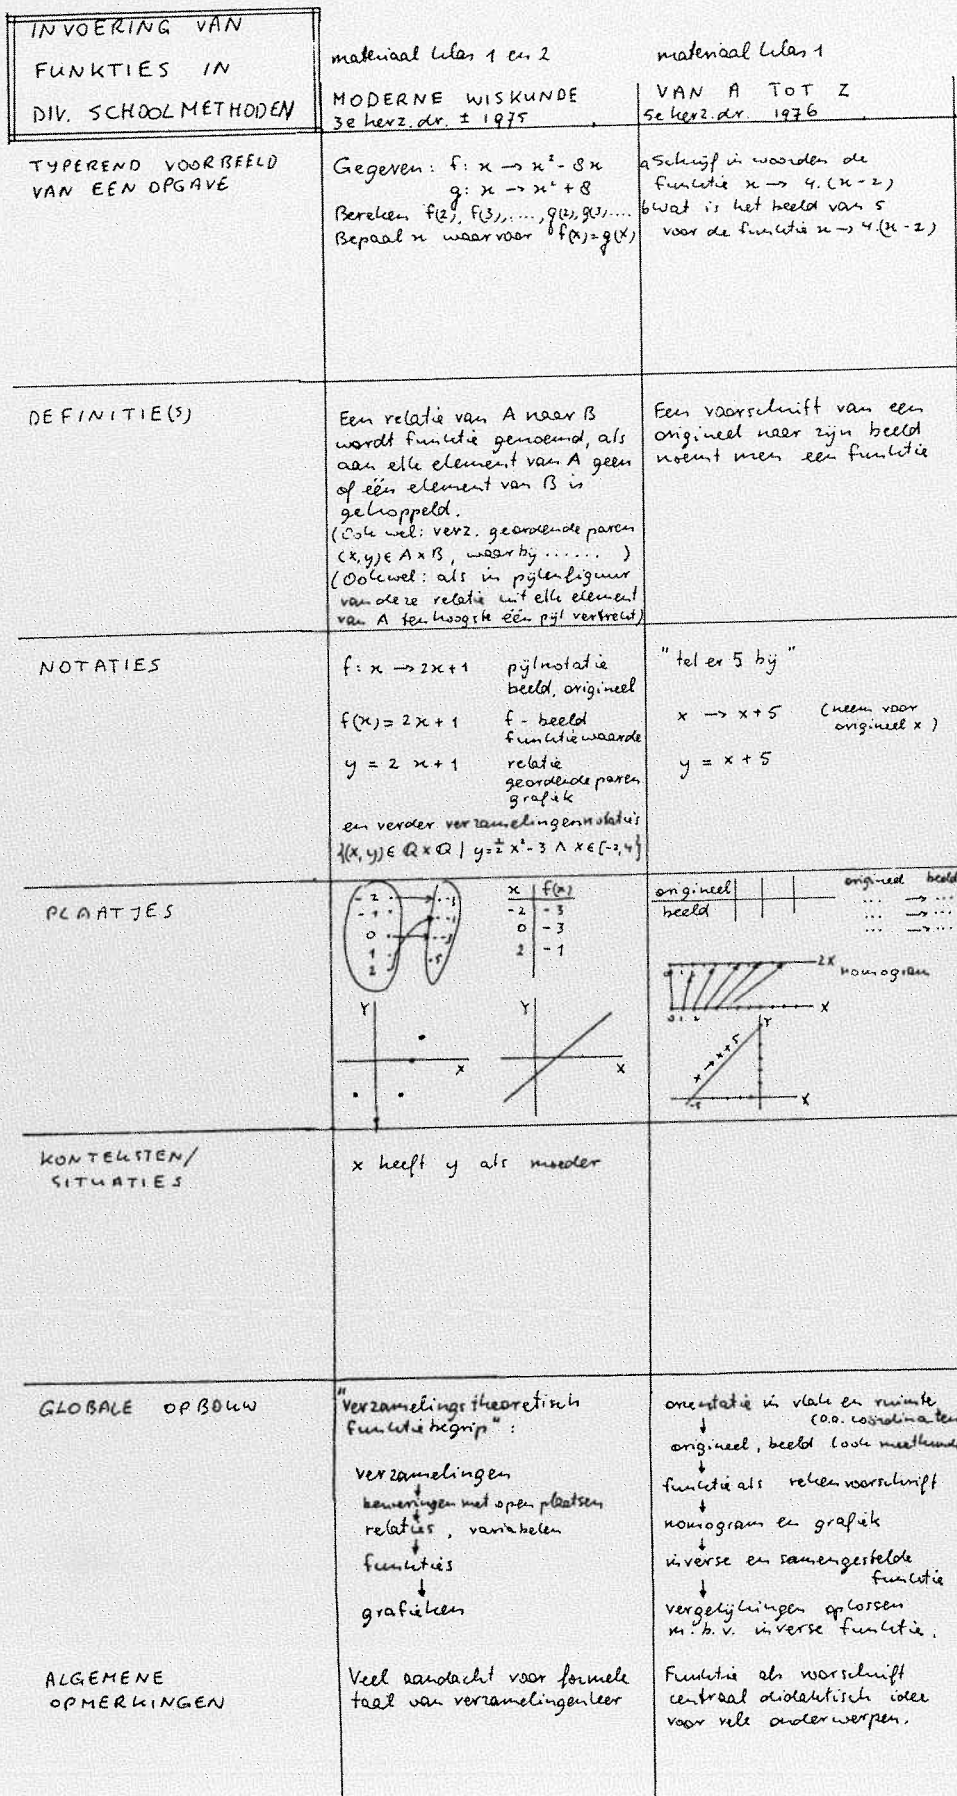 INVOERING VAN
FUNKTIES IN
DIV. SCHOOLMETHODEN
materiaal klas 1 en 2
MODERNE WISKUNDE
3e herz. dr. ± 1975
materiaal klas 1
VAN A TOT Z
5e herz. dr. 1976
TYPEREND VOORBEELD
VAN EEN OPGAVE
Gegeven: f: x → x² - 8x
g: x → x² + 8
Bereken f(2), f(3), ...., g(2), g(3), ....
Bepaal x waarvoor f(x) = g(x)
a Schrijf in woorden de
funktie x → 4.(x-2)
b Wat is het beeld van 5
voor de funktie x → 4.(x-2)
DEFINITIE(S)
Een relatie van A naar B
wordt funktie genoemd, als
aan elk element van A geen
of één element van B is
gekoppeld.
(Ook wel: verz. geordende paren
(x,y) ∈ A x B, waarbij ...... )
(Ook wel: als in pijlenfiguur
van deze relatie uit elk element
van A ten hoogste één pijl vertrekt)
Een voorschrift van een
origineel naar zijn beeld
noemt men een funktie
NOTATIES
f: x → 2x+1 pijlnotatie
beeld, origineel
f(x) = 2x+1 f - beeld
funktiewaarde
y = 2x+1 relatie
geordende paren
grafiek
en verder verzamelingennotaties
{(x,y) ∈ Q x Q | y = ½x² - 3 ∧ x ∈ [-2,4]}
"tel er 5 bij"
x → x+5 (neem voor
origineel x)
y = x+5
PLAATJES
-2
-1
0
1
2
-3
-1
-3
-5
x f(x)
-2 -3
0 -3
2 -1
Y
X
Y
X
origineel
beeld
origineel beeld
... → ...
... → ...
... → ...
2X
nomogram
X
0 1 2
Y
x → x+5
-5
X
KONTEKSTEN/
SITUATIES
x heeft y als moeder
GLOBALE OPBOUW
"Verzamelingstheoretisch
funktiebegrip":
verzamelingen
↓
beweringen met open plaatsen
relaties, variabelen
↓
funkties
↓
grafieken
orientatie in vlak en ruimte
(o.a. coördinaten
↓
origineel, beeld (ook meetkunde
↓
funktie als rekenvoorschrift
↓
nomogram en grafiek
↓
inverse en samengestelde
funktie
↓
vergelijkingen oplossen
m.b.v. inverse funktie.
ALGEMENE
OPMERKINGEN
Veel aandacht voor formele
taal van verzamelingenleer
Funktie als voorschrift
centraal didaktisch idee
voor vele onderwerpen.